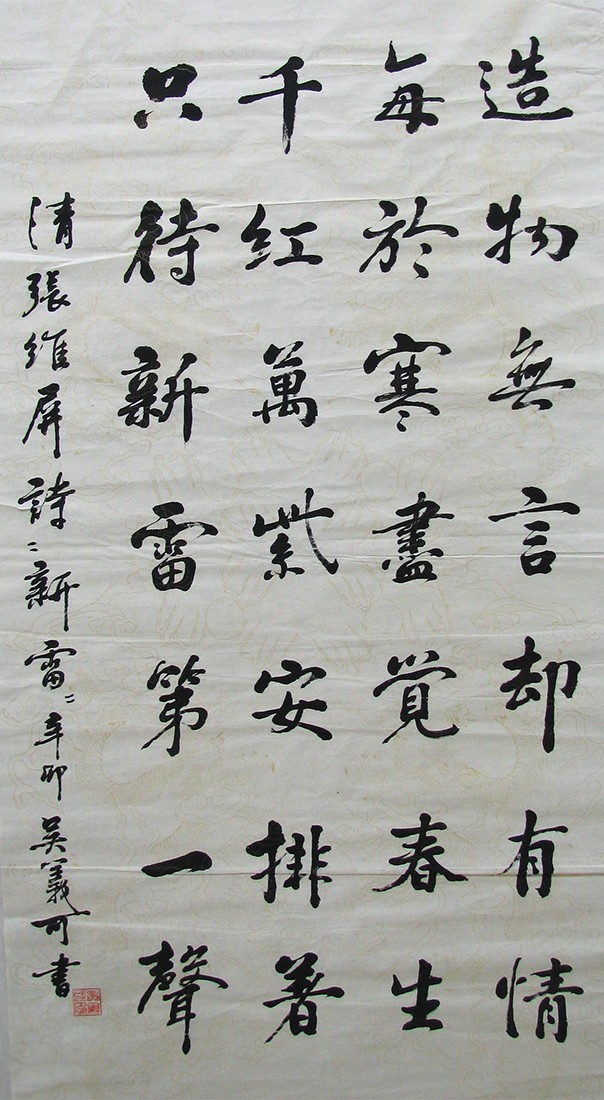 造物無言却有情
每於寒盡覚春生
千紅萬紫安排着
只待新雷第一聲
清張維屏詩〝新雷〞辛卯吴義可書